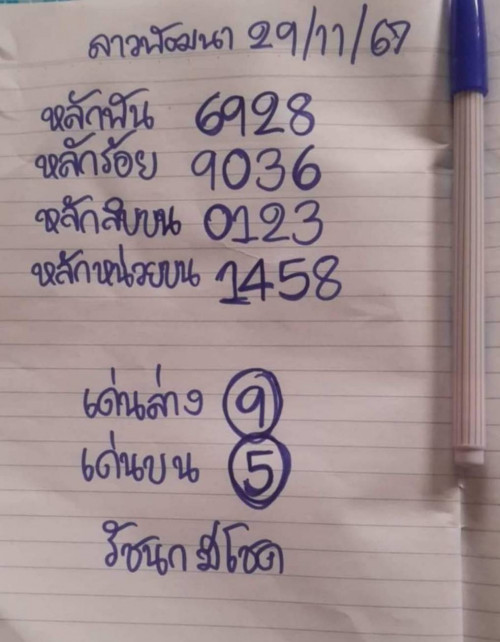 ลาวพัฒนา 29/11/67
หลักพัน 6928
หลักร้อย 9036
หลักสิบบน 0123
หลักหน่วยบน 1458
เด่นล่าง 9
เด่นบน 5
รัชนก มีโชค